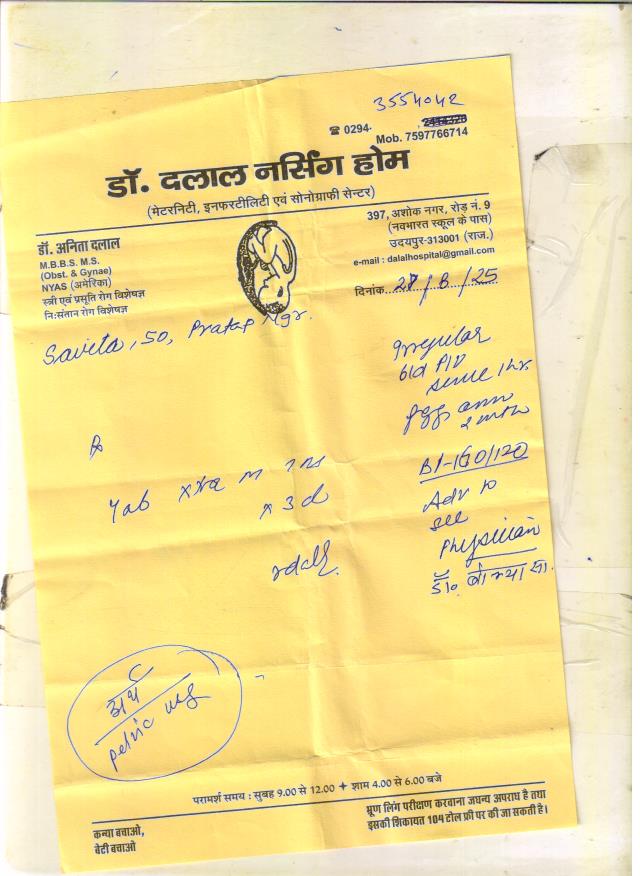 3554042
☎ 0294-
Mob. 7597766714
डॉ. दलाल नर्सिंग होम
(मेटरनिटी, इनफरटीलिटी एवं सोनोग्राफी सेन्टर)
डॉ. अनिता दलाल
M.B.B.S. M.S.
(Obst. & Gynae)
NYAS (अमेरिका)
स्त्री एवं प्रसूति रोग विशेषज्ञ
नि:संतान रोग विशेषज्ञ
397, अशोक नगर, रोड़ नं. 9
(नवभारत स्कूल के पास)
उदयपुर-313001 (राज.)
e-mail : dalalhospital@gmail.com
दिनांक 28/8/25
Savita, 50, Pratap Ngr.
Irregular
bld P/V
since 1 hr.
2 mth
Rx
Tab
x 3 d
BP-160/120
Adv to
see
Physician
डॉ.
अर्थ
pelvic usg
परामर्श समय : सुबह 9.00 से 12.00 ✦ शाम 4.00 से 6.00 बजे
कन्या बचाओ,
बेटी बचाओ
भ्रूण लिंग परीक्षण करवाना जघन्य अपराध है तथा
इसकी शिकायत 104 टोल फ्री पर की जा सकती है।